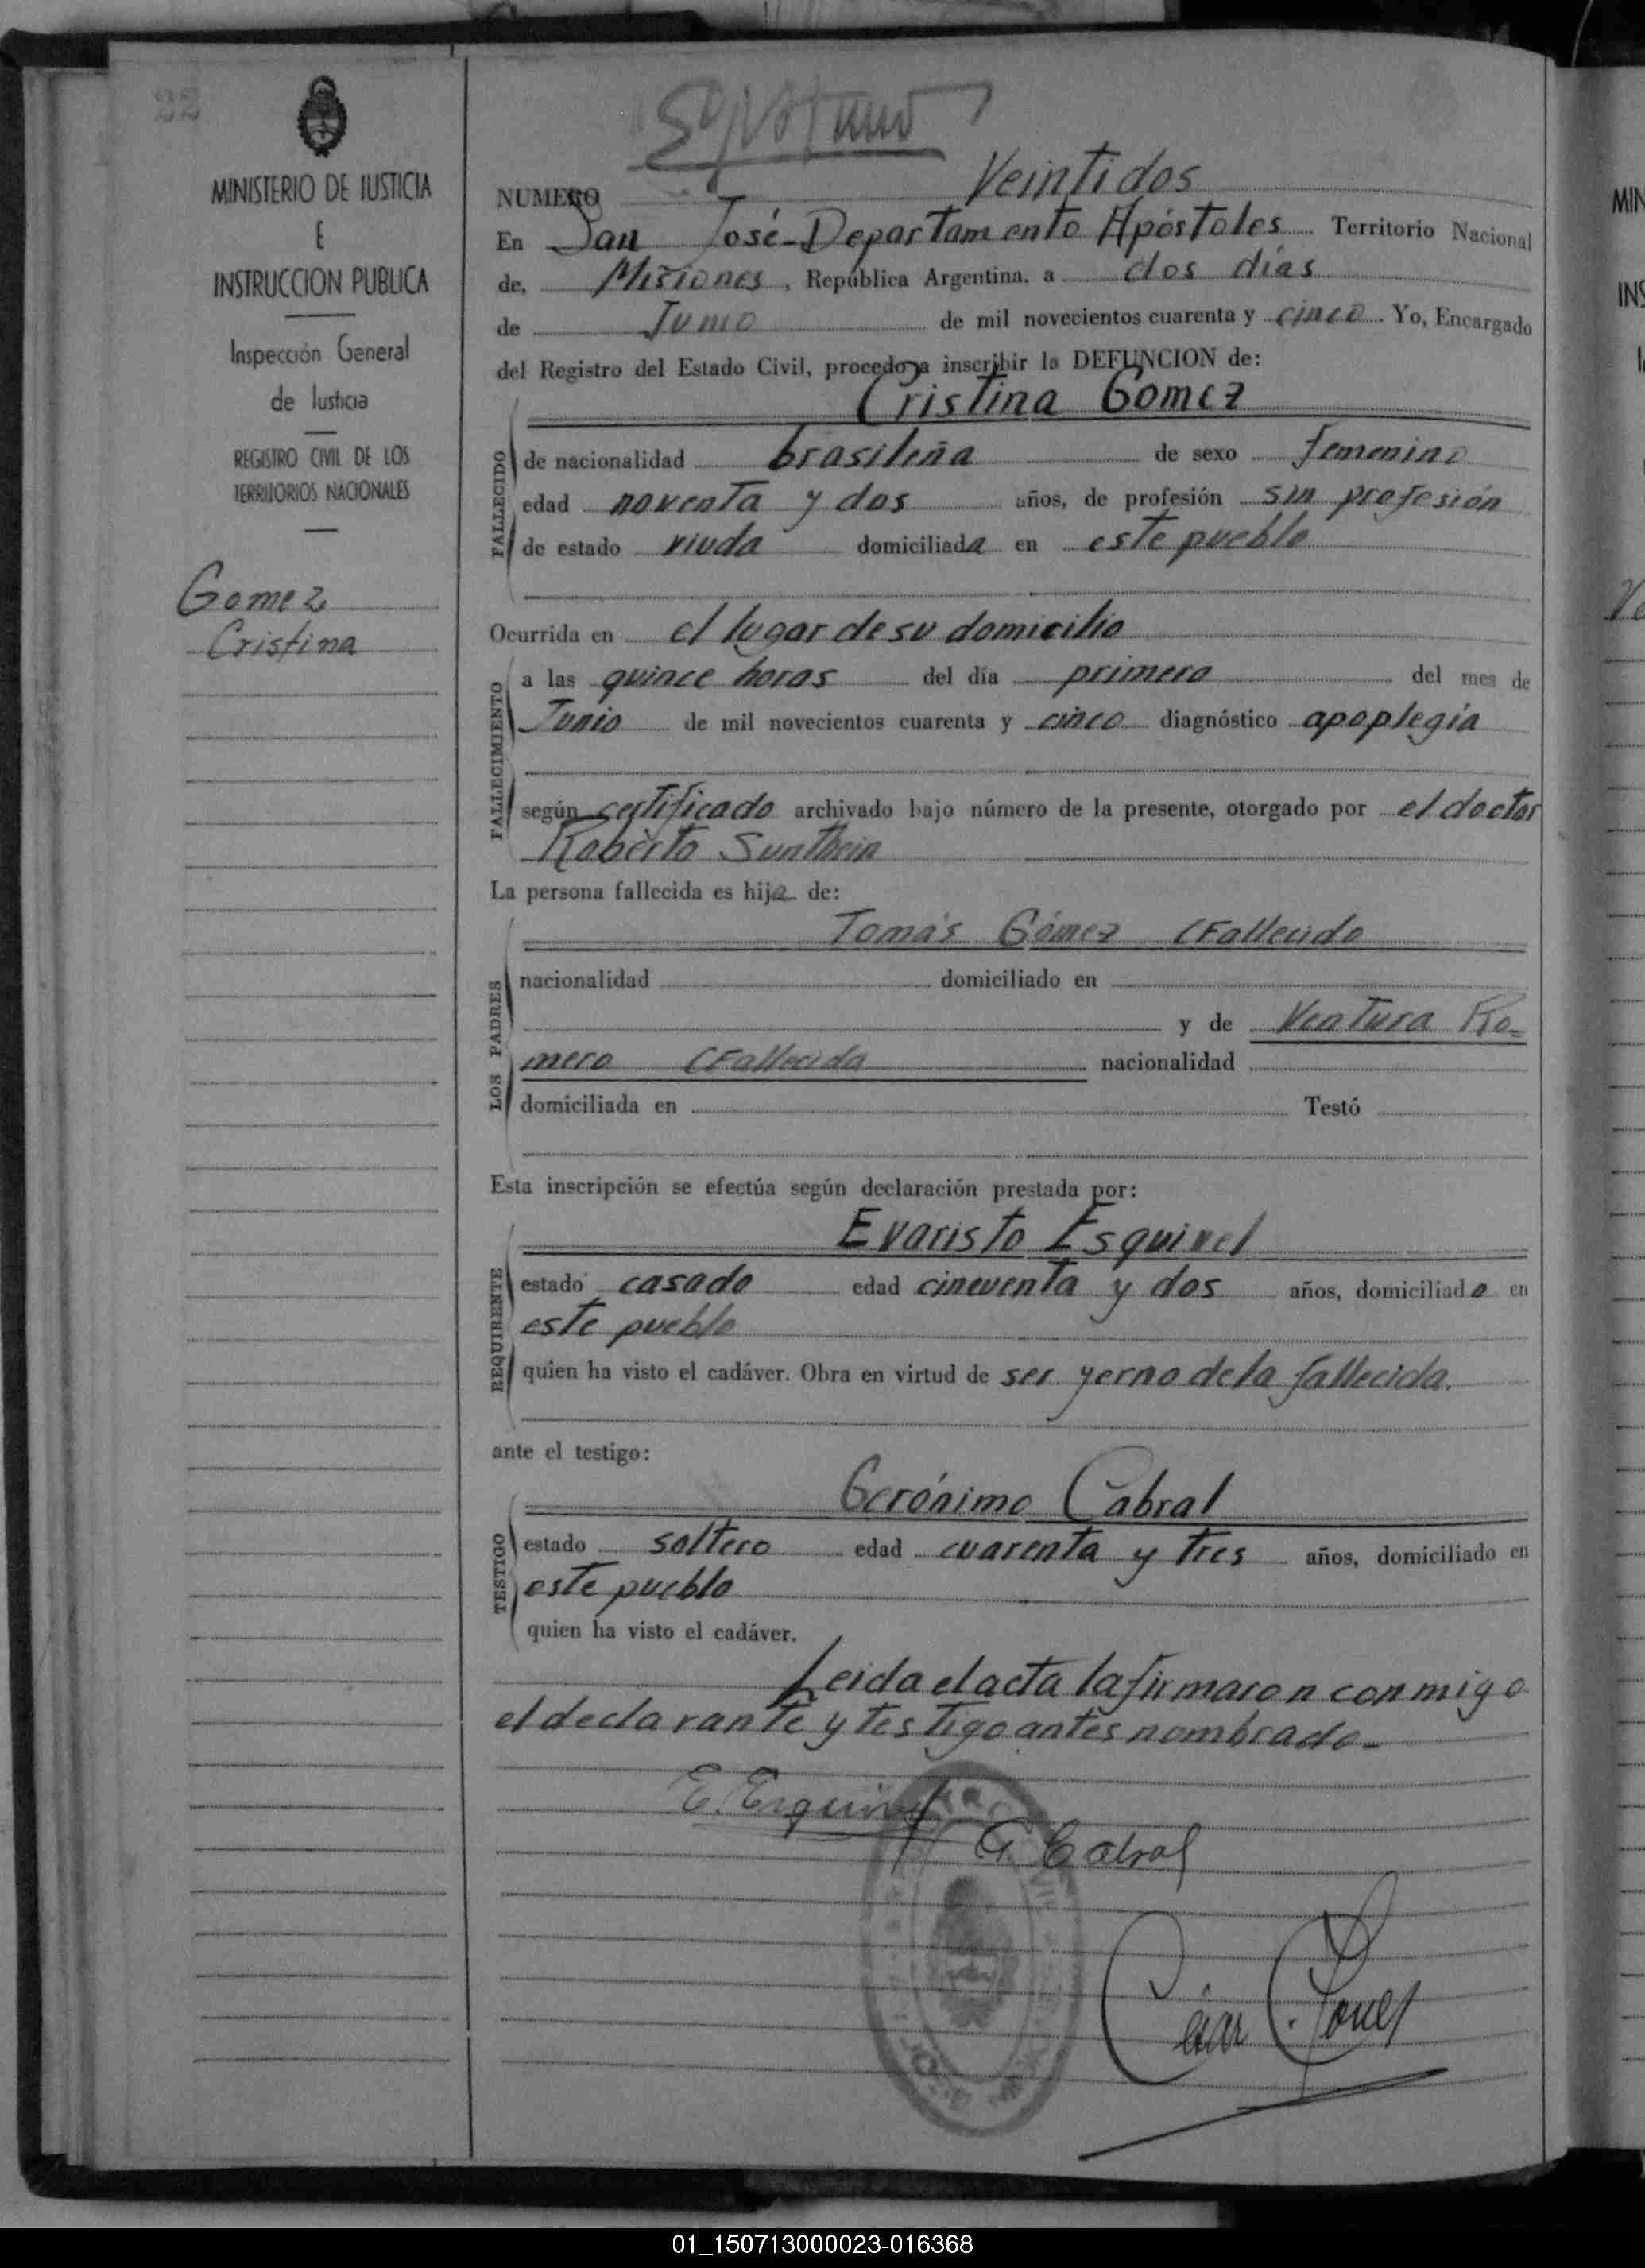 22
MINISTERIO DE JUSTICIA
E
INSTRUCCION PUBLICA
Inspección General
de Justicia
REGISTRO CIVIL DE LOS
TERRITORIOS NACIONALES
Gomez
Cristina
NUMERO Veintidos
En San José-Departamento Apóstoles Territorio Nacional
de, Misiones, República Argentina, a dos días
de Junio de mil novecientos cuarenta y cinco. Yo, Encargado
del Registro del Estado Civil, procedo a inscribir la DEFUNCION de:
Cristina Gomez
FALLECIDO
de nacionalidad brasileña de sexo femenino
edad noventa y dos años, de profesión sin profesión
de estado viuda domiciliada en este pueblo
Ocurrida en el lugar de su domicilio
FALLECIMIENTO
a las quince horas del día primero del mes de
Junio de mil novecientos cuarenta y cinco diagnóstico apoplegía
según certificado archivado bajo número de la presente, otorgado por el doctor
Roberto Sunthein
La persona fallecida es hija de:
LOS PADRES
Tomás Gómez (Fallecido
nacionalidad domiciliado en
y de Ventura Ro-
mero (Fallecida nacionalidad
domiciliada en Testó
Esta inscripción se efectúa según declaración prestada por:
REQUIRENTE
Evaristo Esquivel
estado casado edad cincuenta y dos años, domiciliado en
este pueblo
quien ha visto el cadáver. Obra en virtud de ser yerno de la fallecida.
ante el testigo:
TESTIGO
Gerónimo Cabral
estado soltero edad cuarenta y tres años, domiciliado en
este pueblo
quien ha visto el cadáver.
Leida el acta la firmaron conmigo
el declarante y testigo antes nombrado-
E. Esquivel
G. Cabral
01_150713000023-016368